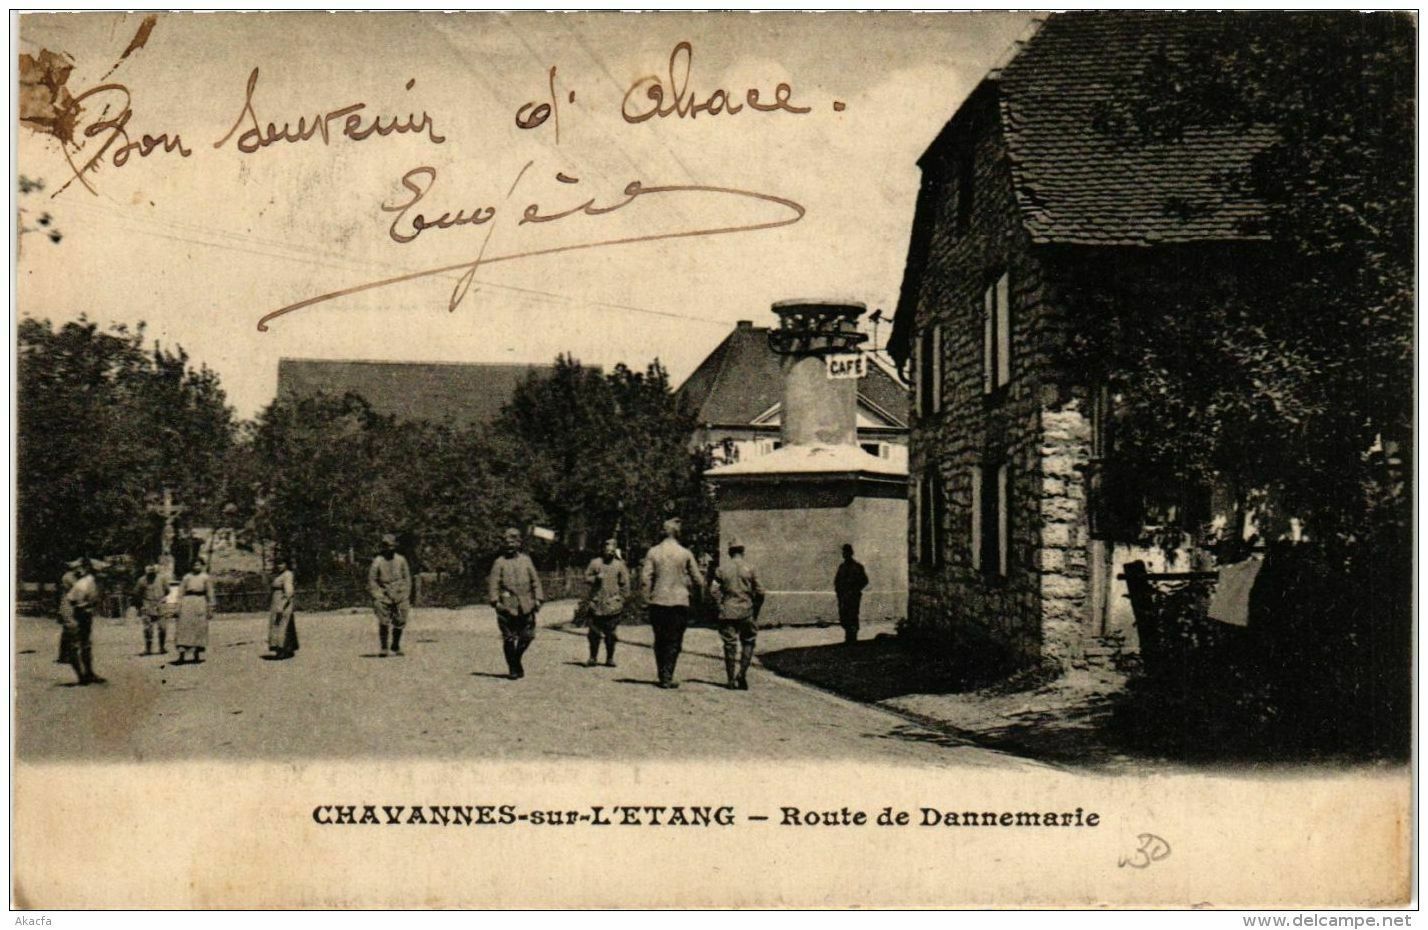 Bon Souvenir d'Alsace.
Eugène
CAFÉ
CHAVANNES-sur-L'ETANG — Route de Dannemarie
30
Akacfa
www.delcampe.net